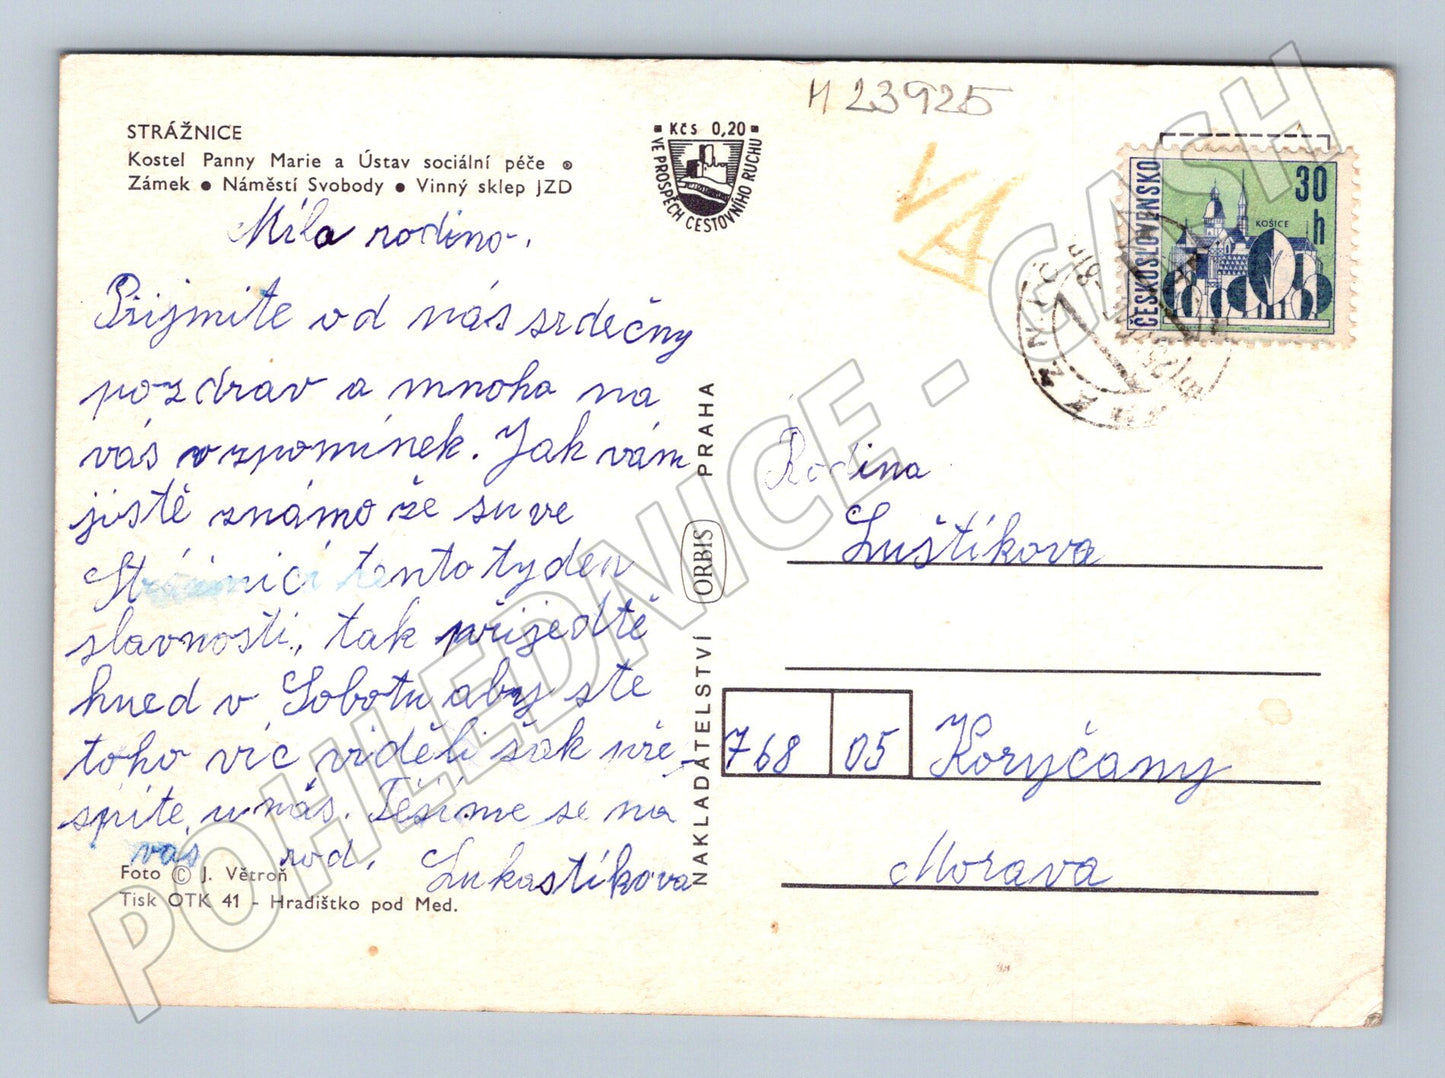 H 23925
STRÁŽNICE
Kostel Panny Marie a Ústav sociální péče ●
Zámek ● Náměstí Svobody ● Vinný sklep JZD
Kčs 0,20
VE PROSPĚCH CESTOVNÍHO RUCHU
ČESKOSLOVENSKO
30 h
KOŠICE
Míla rodino.
Přijmite od nás srdečny
pozdrav a mnoha na
vás vzpomínek. Jak vám
jistě známo že su ve
Strážnici tento tyden
slavnosti, tak přijedtě
hned v Sobotu aby ste
toho víc viděli šak pře-
spite u nás. Těšime se na
vas rod. Lukastíkova
Foto © J. Větroň
Tisk OTK 41 - Hradištko pod Med.
NAKLADATELSTVÍ ORBIS PRAHA
Rodina
Luštíkova
768 05 Koryčany
Morava
POHLEDNICE - GASH